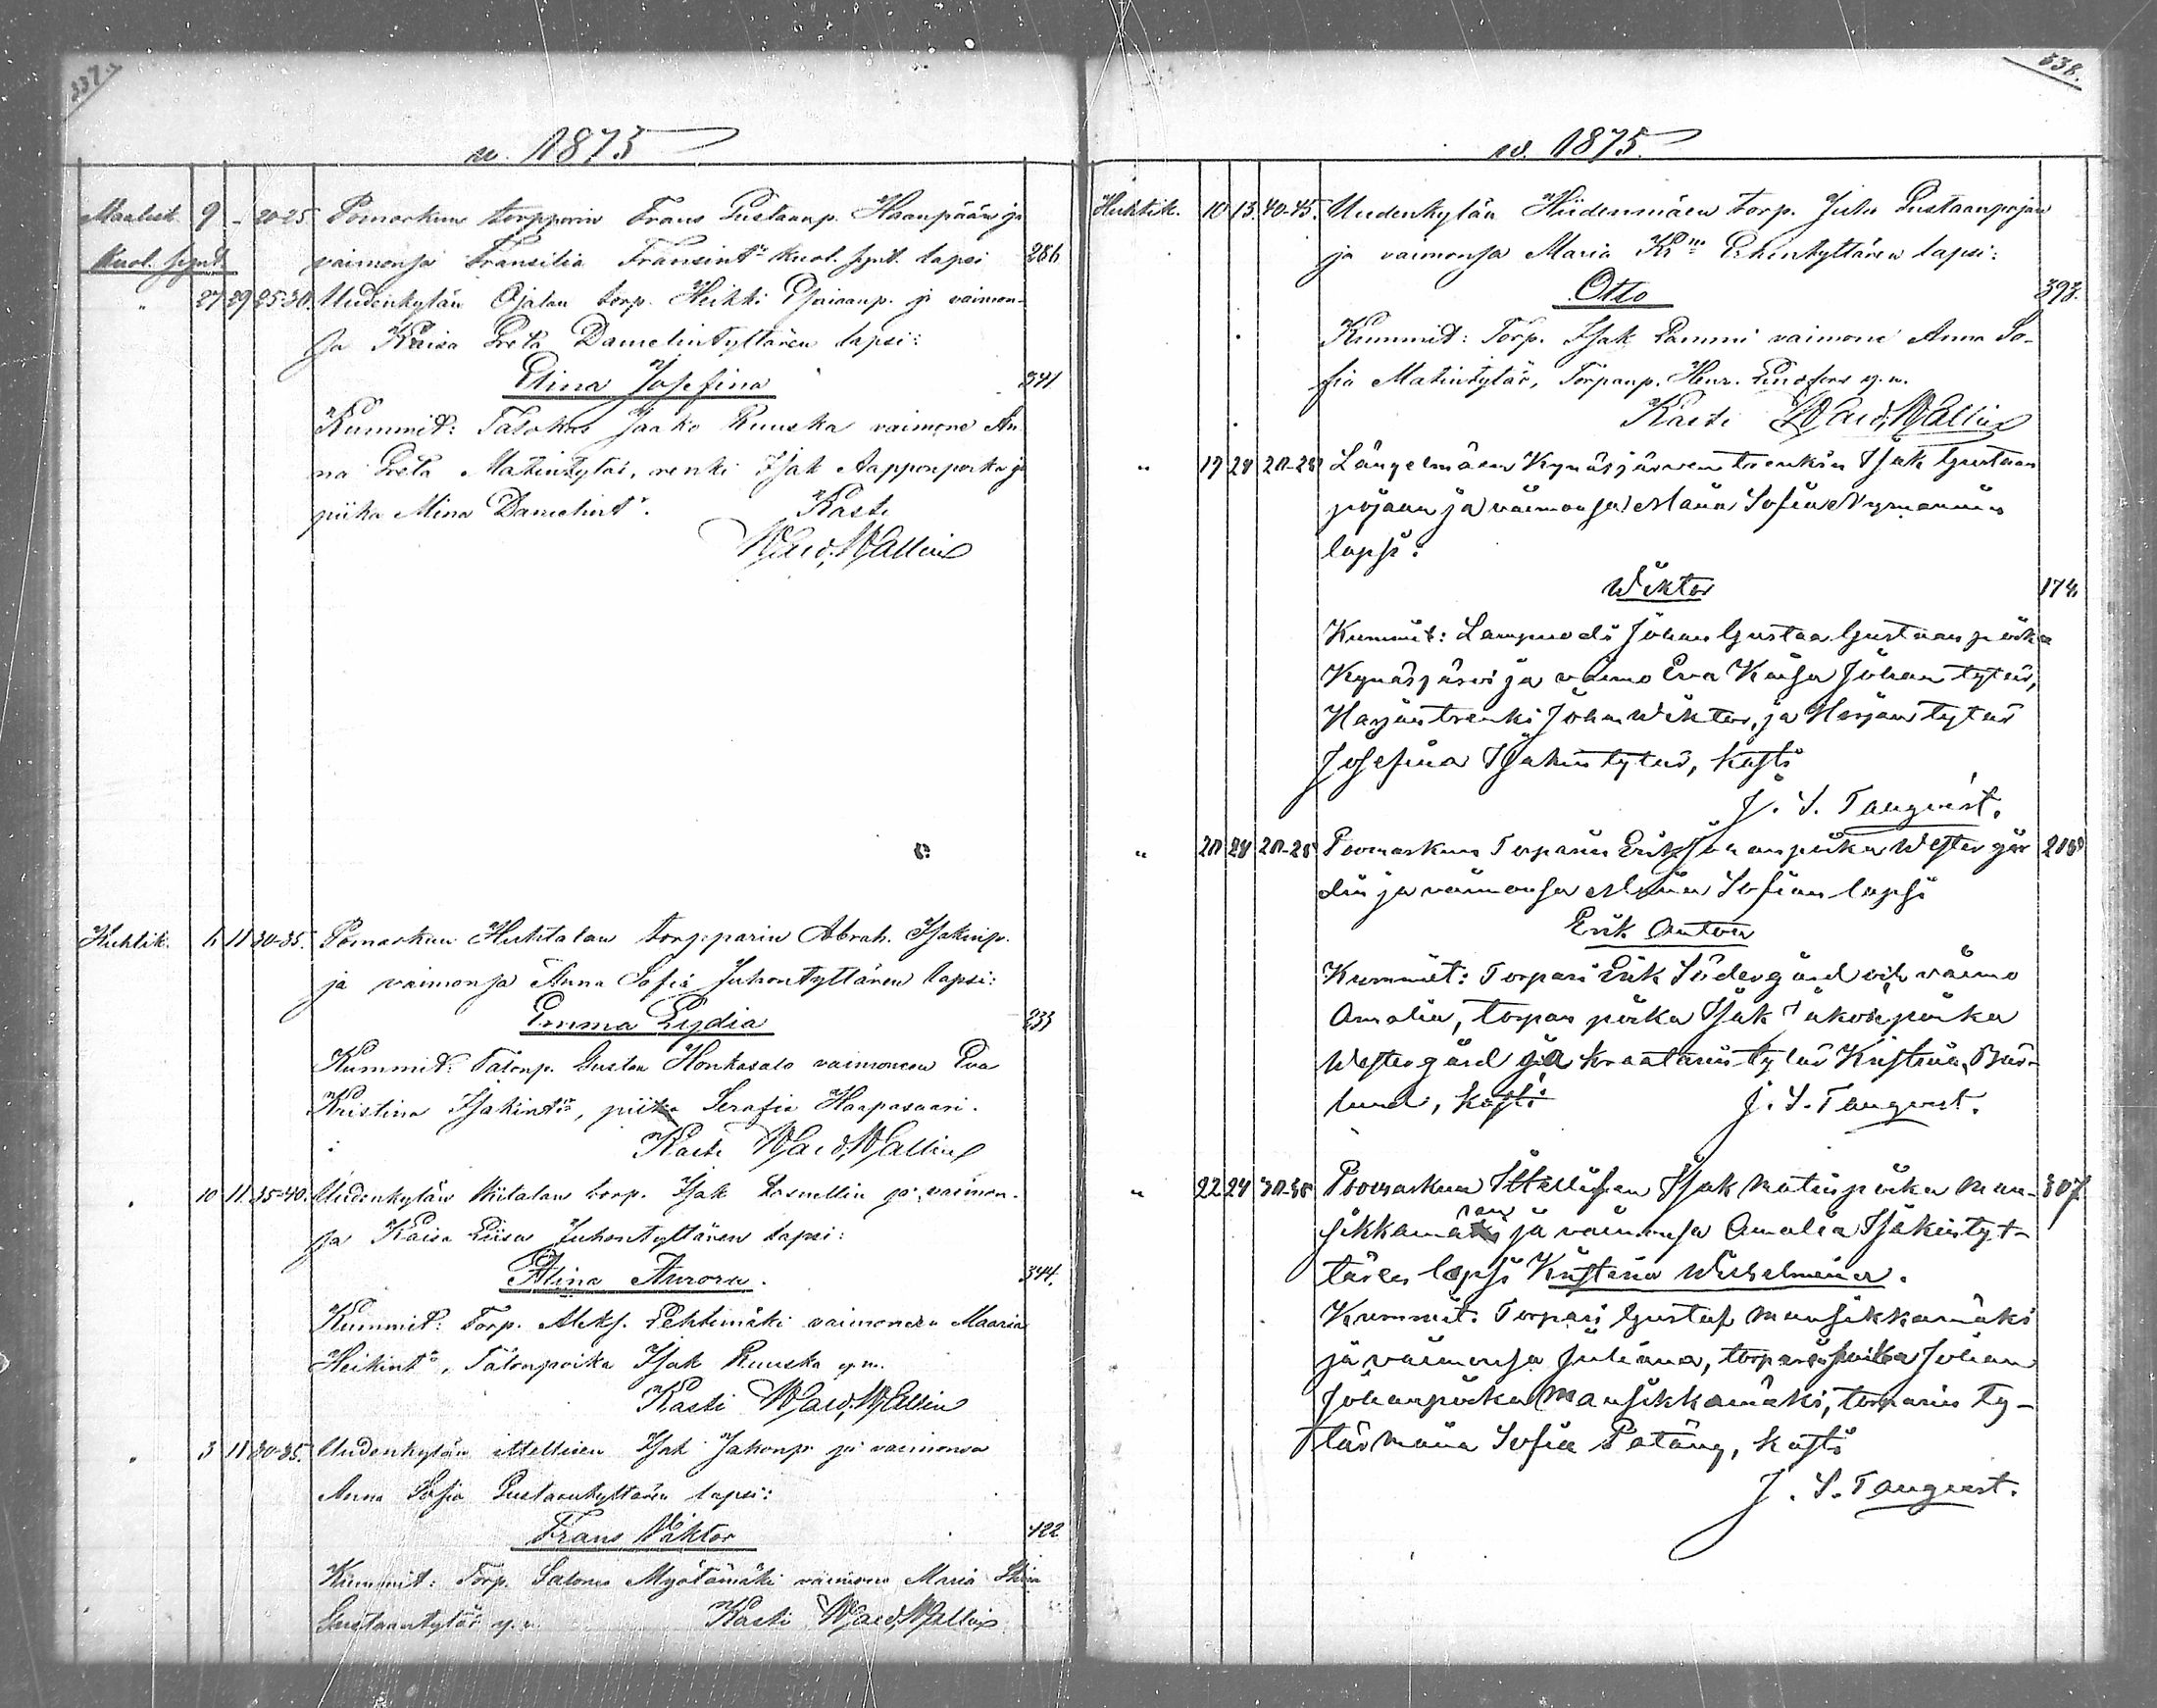 337.
w. 1875
Maalisk. 9 - 20-25 Pomarkun torpparin Frans Gustaanp. Haanpään ja
Kuol. synt. vaimonsa Fransilia Fransint:r kuol. synt. lapsi 286
" 27 29 25-30. Uudenkylän Ojalan torp. Heikki Esaiaanp. ja vaimon-
sa Kaisa Greta Danielintyttären lapsi:
Elina Josefina 341
Kummit: Talokas Jaako Ruuska vaimone An
na Greta Matintytär, renki Isak Aapponpoika ja
piika Mina Danielint:r. Kasti
Wald. Wallin
Huhtik. 6 11 30-35. Pomarkun Huhtalan torpparin Abrah. Isakinp.
ja vaimonsa Anna Sofia Juhontyttären lapsi:
Emma Lydia 233
Kummit: Talonp. Gustaa Honkasalo vaimoneen Eva
Kristina Isakint:r, piika Serafia Haapasaari.
Kasti Wald. Wallin
. 10 11 35-40. Uudenkylän Kiitalan torp. Isak ja vaimon-
sa Kaisa Liisa Juhontyttären lapsi:
Alina Aurora. 344.
Kummit: Torp. Aleks. Lehtimäki vaimonensa Maaria
Heikint:r, Talonpoika Isak Ruuska y.m.
Kasti Wald. Wallin
. 3 11 30-35. Uudenkylän ittellisen Isak Jakonp. ja vaimonsa
Anna Sofia Gustaantyttären lapsi:
Frans Viktor 422
Kummit: Torp. Salomo Myötämäki vaimone Maria Stiina
Gustaantytär y.m. Kasti Wald. Wallin
338.
w. 1875.
Huhtik. 10 13 40-45. Uudenkylän Hiidenmäen torp. Juho Gustaanpojan
ja vaimonsa Maria Kr:na Erkintyttären lapsi:
Otto 393.
Kummit: Torp. Isak Lammi vaimone Anna So-
fia Matintytär, Torpanp. Henr. Lindfors y.m.
Kasti Wald. Wallin
" 19 24 20-25 Längelmäen Kynäsjärven trenkin Isak Gustaan
pojaan ja vaimonsa Maria Sofia Nymannin
lapsi:
Wiktor 174
Kummit: Lampuodi Johan Gustaa Gustaanpoika
Kynäsjärvi ja vaimo Eva Kaisa Johantytär,
Harjun trenki Johan Wiktor, ja Harjun tytär
Josefina Isakintytär, kasti
J. S. Tanqvist.
" 20 24 20-25 Poomarkun Torparin Erik Johanpoika Westergår 208
din ja vaimonsa Maria Sofian lapsi
Erik Anton
Kummit: Torpari Erik Södergård och vaimo
Amalia, torpan poika Isak Jakobpoika
Westergård ja kraatarin tytär Kristina
lund, kasti J. S. Tanqvist.
" 22 24 30-35 Poomarkun Ittellisen Isak Matinpoika Man- 307
sikkamäen ja vaimonsa Amalia Isakintyt-
tären lapsi Kristina Wilhelmina.
Kummit: Torpari Gustaf Mansikkamäki
ja vaimonsa Juliana, torparin poika Johan
Johanpoika Mansikkamäki, torparin ty-
tär Maria Sofia Petäng, kasti
J. S. Tanqvist.